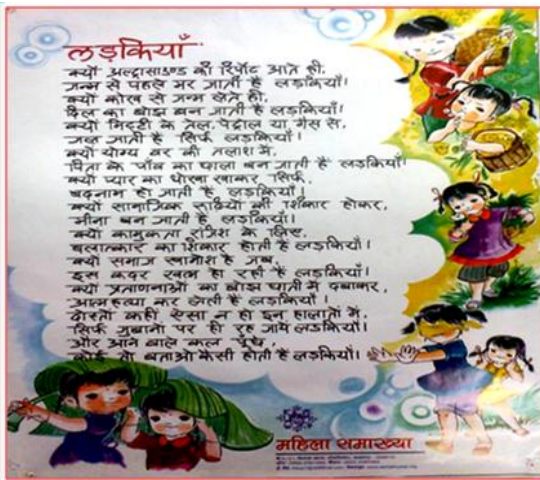 लड़कियाँ
क्यों अल्ट्रासाउण्ड की रिर्पोट आते ही,
जन्म से पहले मर जाती है लड़कियाँ।
क्यों कोख से जन्म लेते ही,
दिल का बोझ बन जाती है लड़कियाँ।
क्यों मिट्टी के तेल, पेट्रोल या गैस से,
जल जाती है सिर्फ लड़कियाँ।
क्यों योग्य वर की तलाश में,
पिता के पाँव का छाला बन जाती है लड़कियाँ।
क्यों प्यार का धोखा खाकर सिर्फ,
बदनाम हो जाती है लड़कियाँ।
क्यों सामाजिक रूढ़ियों की शिकार होकर,
मीना बन जाती है लड़कियाँ।
क्यों कामुकता रंजिश के लिए,
बलात्कार का शिकार होती है लड़कियाँ।
क्यों समाज खामोश है जब,
इस कदर खत्म हो रही है लड़कियाँ।
क्यों प्रताणनाओं का बोझ छाती में दबाकर,
आत्महत्या कर लेती है लड़कियाँ।
दोस्तों कहीं ऐसा न हो इन हालातों में,
सिर्फ जुबानों पर ही रह जाये लड़कियाँ।
और आने वाले कल पूँछे,
कोई तो बताओ कैसी होती है लड़कियाँ।
महिला समाख्या